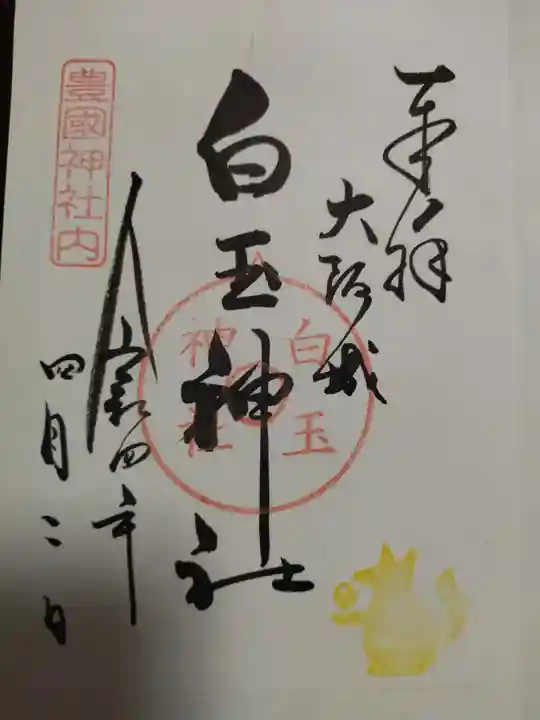 奉拝
大阪城
白玉神社
白玉
神社
豊國神社内
令和四年
四月二日